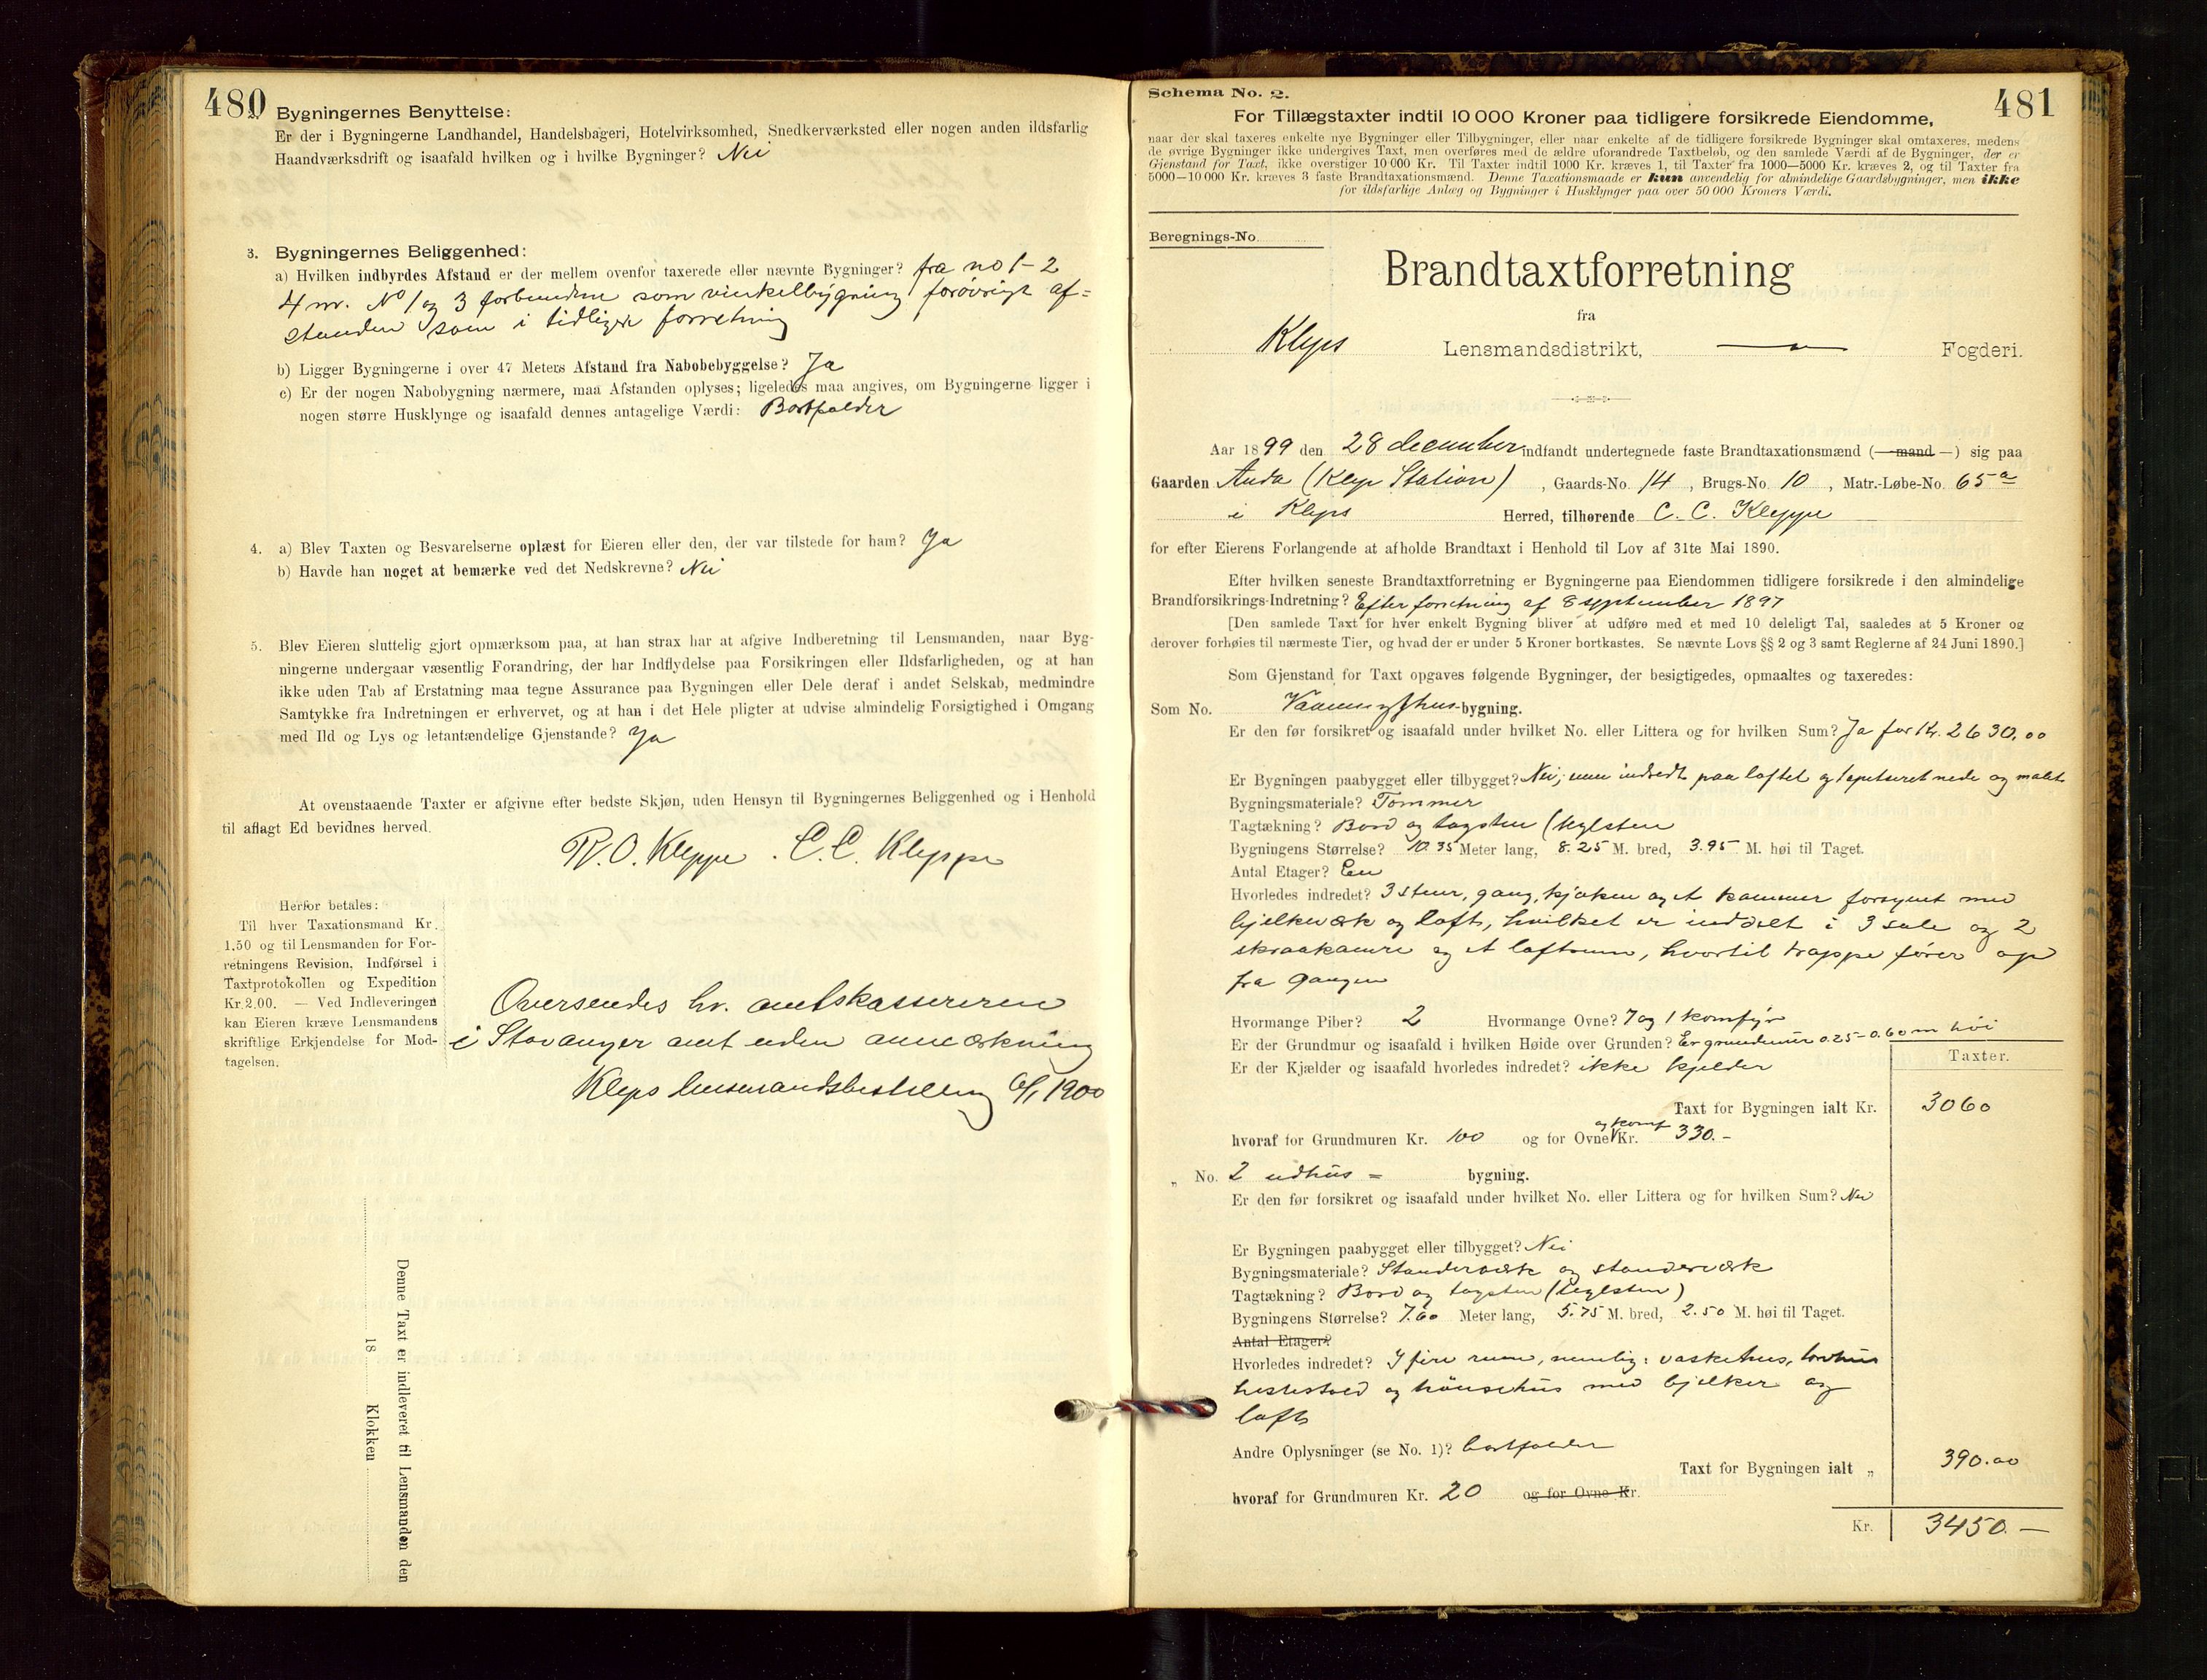 480
2. Bygningernes Benyttelse:
Er der i Bygningerne Landhandel, Handelsbageri, Hotelvirksomhed, Snedkerværksted eller nogen anden ildsfarlig
Haandværksdrift og isaafald hvilken og i hvilke Bygninger? Nei
3. Bygningernes Beliggenhed:
a) Hvilken indbyrdes Afstand er der mellem ovenfor taxerede eller nævnte Bygninger? fra no 1-2
4 m. No 1 og 3 forbundne som vinkelbygning forøvrigt af-
standen som i tidligere forretning
b) Ligger Bygningerne i over 47 Meters Afstand fra Nabobebyggelse? Ja
c) Er der nogen Nabobygning nærmere, maa Afstanden oplyses; ligeledes maa angives, om Bygningerne ligger i
nogen større Husklynge og isaafald dennes antagelige Værdi: Bortfalder
4. a) Blev Taxten og Besvarelserne oplæst for Eieren eller den, der var tilstede for ham? Ja
b) Havde han noget at bemærke ved det Nedskrevne? Nei
5. Blev Eieren sluttelig gjort opmærksom paa, at han strax har at afgive Indberetning til Lensmanden, naar Byg-
ningerne undergaar væsentlig Forandring, der har Indflydelse paa Forsikringen eller Ildsfarligheden, og at han
ikke uden Tab af Erstatning maa tegne Assurance paa Bygningen eller Dele deraf i andet Selskab, medmindre
Samtykke fra Indretningen er erhvervet, og at han i det Hele pligter at udvise almindelig Forsigtighed i Omgang
med Ild og Lys og letantændelige Gjenstande? Ja
At ovenstaaende Taxter er afgivne efter bedste Skjøn, uden Hensyn til Bygningernes Beliggenhed og i Henhold
til aflagt Ed bevidnes herved.
R. O. Kleppe. C. C. Kleppe
Herfor betales:
Til hver Taxationsmand Kr.
1.50 og til Lensmanden for For-
retningens Revision, Indførsel i
Taxtprotokollen og Expedition
Kr. 2.00. — Ved Indleveringen
kan Eieren kræve Lensmandens
skriftlige Erkjendelse for Mod-
tagelsen.
Oversendes hr. amtskassereren
i Stavanger amt uden anmærkning
Klep lensmandsbestilling 6/1 1900
Denne Taxt er indleveret til Lensmanden den
18 Klokken
481
Schema No. 2.
For Tillægstaxter indtil 10 000 Kroner paa tidligere forsikrede Eiendomme,
naar der skal taxeres enkelte nye Bygninger eller Tilbygninger, eller naar enkelte af de tidligere forsikrede Bygninger skal omtaxeres, medens
de øvrige Bygninger ikke undergives Taxt, men overføres med de ældre uforandrede Taxtbeløb, og den samlede Værdi af de Bygninger, der er
Gjenstand for Taxt, ikke overstiger 10 000 Kr. Til Taxter indtil 1000 Kr. kræves 1, til Taxter fra 1000—5000 Kr. kræves 2, og til Taxter fra
5000—10 000 Kr. kræves 3 faste Brandtaxationsmænd. Denne Taxationsmaade er kun anvendelig for almindelige Gaardsbygninger, men ikke
for ildsfarlige Anlæg og Bygninger i Husklynger paa over 50 000 Kroners Værdi.
Beregnings-No.
Brandtaxtforretning
fra
Klep Lensmandsdistrikt, Fogderi.
Aar 1899 den 28 december indfandt undertegnede faste Brandtaxationsmænd (—mand—) sig paa
Gaarden Anda (Klep Station), Gaards-No. 14, Brugs-No. 10, Matr.-Løbe-No. 65a
i Klep Herred, tilhørende C. C. Kleppe
for efter Eierens Forlangende at afholde Brandtaxt i Henhold til Lov af 31te Mai 1890.
Efter hvilken seneste Brandtaxtforretning er Bygningerne paa Eiendommen tidligere forsikrede i den almindelige
Brandforsikrings-Indretning? Efter forretning af 8 september 1897
[Den samlede Taxt for hver enkelt Bygning bliver at udføre med et med 10 deleligt Tal, saaledes at 5 Kroner og
derover forhøies til nærmeste Tier, og hvad der er under 5 Kroner bortkastes. Se nævnte Lovs §§ 2 og 3 samt Reglerne af 24 Juni 1890.]
Som Gjenstand for Taxt opgaves følgende Bygninger, der besigtigedes, opmaaltes og taxeredes:
Som No. Vaaningshus-bygning.
Er den før forsikret og isaafald under hvilket No. eller Littera og for hvilken Sum? Ja for Kr. 2630.00
Er Bygningen paabygget eller tilbygget? Nei, men indredt paa loftet og tapetseret nede og malet
Bygningsmateriale? Tømmer
Tagtækning? Bord og tagsten (teglsten
Bygningens Størrelse? 10.35 Meter lang, 8.25 M. bred, 3.95 M. høi til Taget.
Antal Etager? En
Hvorledes indredet? 3 stuer, gang, kjøken og et kammer forsynet med
bjelkeværk og loft, hvilket er inddelt i 3 sale og 2
skraakamre og et loftsrum, hvortil trappe fører op
fra gangen
Hvormange Piber? 2 Hvormange Ovne? 7 og 1 komfyr
Er der Grundmur og isaafald i hvilken Høide over Grunden? Er grundmur 0.25-0.60 m høi
Er der Kjælder og isaafald hvorledes indredet? ikke kjelder
Taxter.
Taxt for Bygningen ialt Kr. 3060
hvoraf for Grundmuren Kr. 100 og for Ovne og komf Kr. 330.-
„ No. 2 udhus = bygning.
Er den før forsikret og isaafald under hvilket No. eller Littera og for hvilken Sum? Nei
Er Bygningen paabygget eller tilbygget? Nei
Bygningsmateriale? Standerværk og standerværk
Tagtækning? Bord og tagsten (teglsten)
Bygningens Størrelse? 7.60 Meter lang, 5.75 M. bred, 2.50 M. høi til Taget.
Antal Etager?
Hvorledes indredet? I fire rum, nemlig: vaskehus, torvhus
hestestald og hønsehus med bjelker og
loft
Andre Oplysninger (se No. 1)? bortfalder
Taxt for Bygningen ialt „ 390.00
hvoraf for Grundmuren Kr. 20 og for Ovne Kr.
Kr. 3450.—